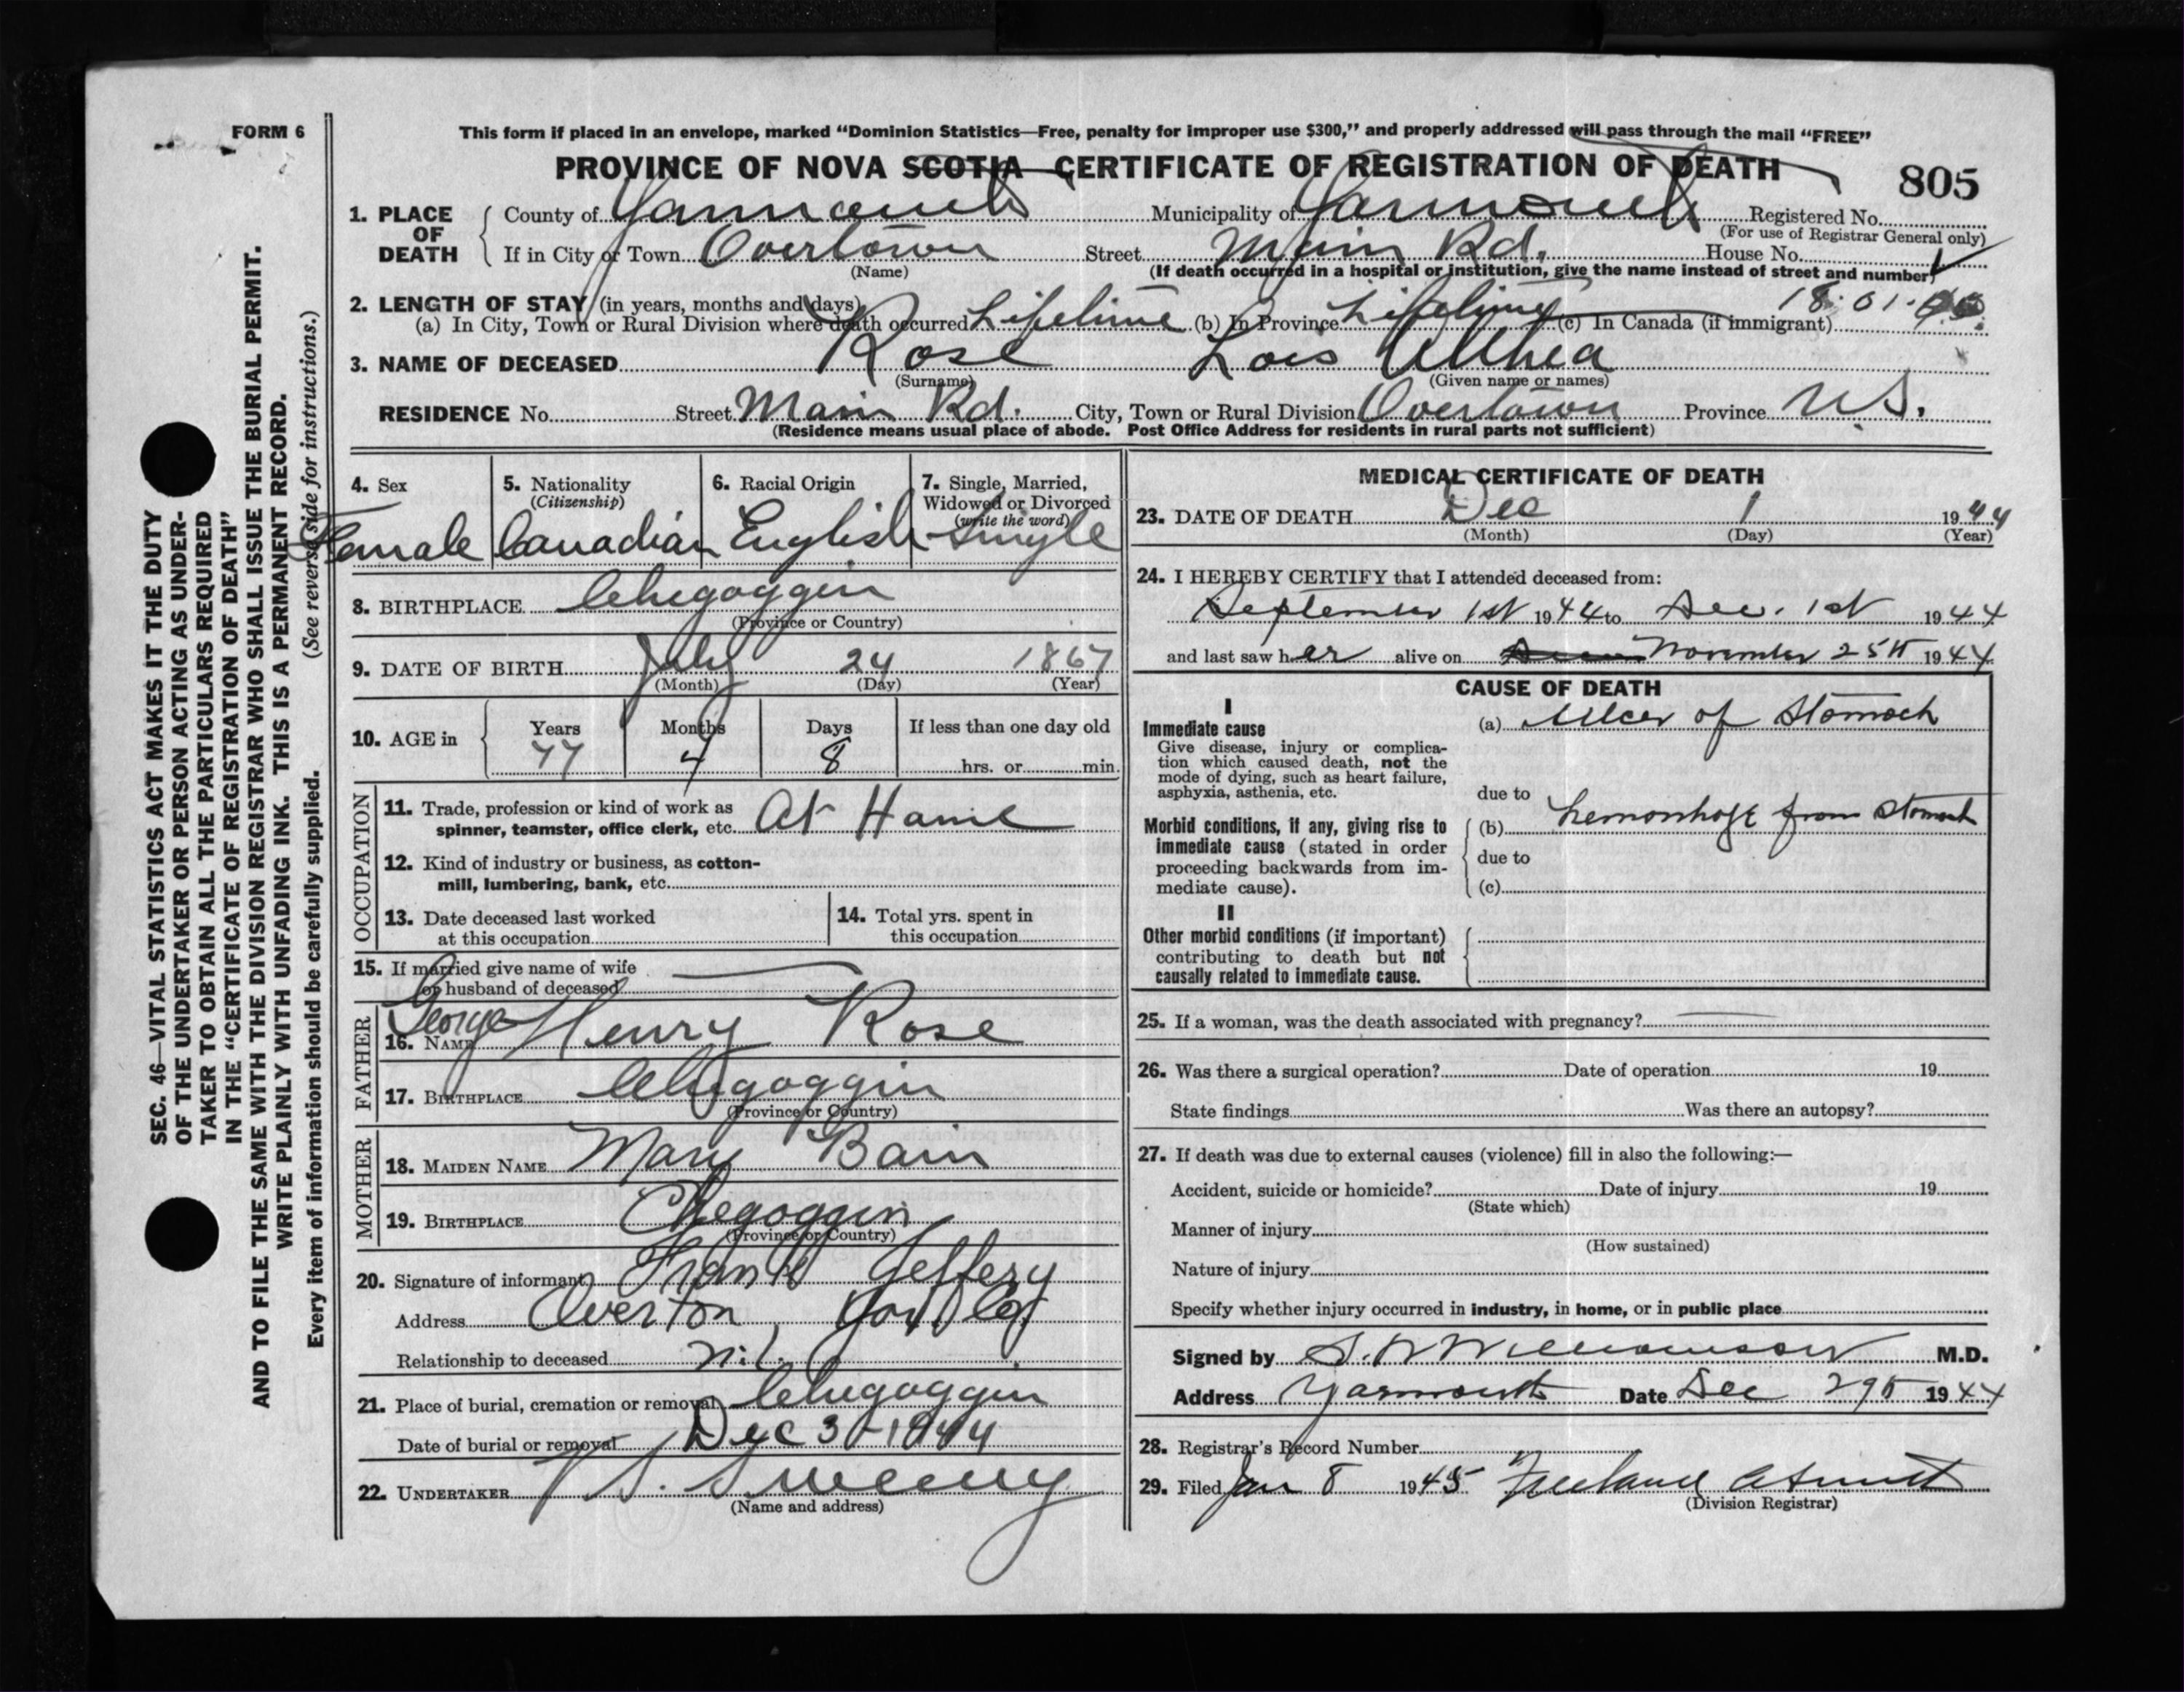 FORM 6
This form if placed in an envelope, marked “Dominion Statistics—Free, penalty for improper use $300,” and properly addressed will pass through the mail “FREE”
PROVINCE OF NOVA SCOTIA—CERTIFICATE OF REGISTRATION OF DEATH
805
1. PLACE OF DEATH
County of Yarmouth Municipality of Yarmouth Registered No.
(For use of Registrar General only)
If in City or Town Overtown Street Main Rd. House No.
(Name)
(If death occurred in a hospital or institution, give the name instead of street and number)
2. LENGTH OF STAY (in years, months and days)
18-01-
(a) In City, Town or Rural Division where death occurred Lifetime (b) In Province Lifetime (c) In Canada (if immigrant)
3. NAME OF DECEASED Rose Lois Althea
(Surname) (Given name or names)
RESIDENCE No. Street Main Rd. City, Town or Rural Division Overtown Province N.S.
(Residence means usual place of abode. Post Office Address for residents in rural parts not sufficient)
4. Sex
Female
5. Nationality
(Citizenship)
Canadian
6. Racial Origin
English
7. Single, Married,
Widowed or Divorced
(write the word)
Single
8. BIRTHPLACE Chegoggin
(Province or Country)
9. DATE OF BIRTH July 24 1867
(Month) (Day) (Year)
10. AGE in
Years Months Days If less than one day old
77 4 8 hrs. or min.
OCCUPATION
11. Trade, profession or kind of work as
spinner, teamster, office clerk, etc. At Home
12. Kind of industry or business, as cotton-
mill, lumbering, bank, etc.
13. Date deceased last worked
at this occupation
14. Total yrs. spent in
this occupation
15. If married give name of wife
or husband of deceased
FATHER
16. NAME George Henry Rose
17. BIRTHPLACE Chegoggin
(Province or Country)
MOTHER
18. MAIDEN NAME Mary Bain
19. BIRTHPLACE Chegoggin
(Province or Country)
20. Signature of informant Frank Jeffery
Address Overton Yar Co
Relationship to deceased nil
21. Place of burial, cremation or removal Chegoggin
Date of burial or removal Dec 3 - 1944
22. UNDERTAKER V S. Sweeny
(Name and address)
MEDICAL CERTIFICATE OF DEATH
23. DATE OF DEATH Dec 1 1944
(Month) (Day) (Year)
24. I HEREBY CERTIFY that I attended deceased from:
September 1st 1944 to Dec. 1st 1944
and last saw her alive on November 25th 1944
CAUSE OF DEATH
I
Immediate cause
Give disease, injury or complica-
tion which caused death, not the
mode of dying, such as heart failure,
asphyxia, asthenia, etc.
(a) Ulcer of Stomach
due to
Morbid conditions, if any, giving rise to
immediate cause (stated in order
proceeding backwards from im-
mediate cause).
(b) hemorrhage from stomach
due to
(c)
II
Other morbid conditions (if important)
contributing to death but not
causally related to immediate cause.
25. If a woman, was the death associated with pregnancy?
26. Was there a surgical operation? Date of operation 19
State findings Was there an autopsy?
27. If death was due to external causes (violence) fill in also the following:—
Accident, suicide or homicide? Date of injury 19
(State which)
Manner of injury
(How sustained)
Nature of injury
Specify whether injury occurred in industry, in home, or in public place
Signed by S. W Williamson M.D.
Address Yarmouth Date Dec 29th 1944
28. Registrar's Record Number
29. Filed Jan 8 1945 Freeland
(Division Registrar)
SEC. 46—VITAL STATISTICS ACT MAKES IT THE DUTY
OF THE UNDERTAKER OR PERSON ACTING AS UNDER-
TAKER TO OBTAIN ALL THE PARTICULARS REQUIRED
IN THE “CERTIFICATE OF REGISTRATION OF DEATH”
AND TO FILE THE SAME WITH THE DIVISION REGISTRAR WHO SHALL ISSUE THE BURIAL PERMIT.
WRITE PLAINLY WITH UNFADING INK. THIS IS A PERMANENT RECORD.
Every item of information should be carefully supplied. (See reverse side for instructions.)